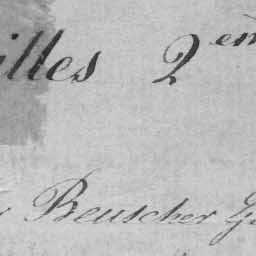 illes 2em
Beuscher